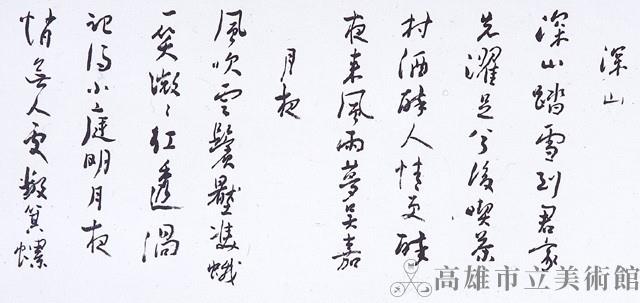 深山
深山踏雪到君家
先濯足兮後喫茶
村酒醉人情更醉
夜來風雨夢吳嘉
月夜
風吹雲鬢
一笑微々紅透渦
記得小庭明月夜
悄無人更數箕螺
高雄市立美術館